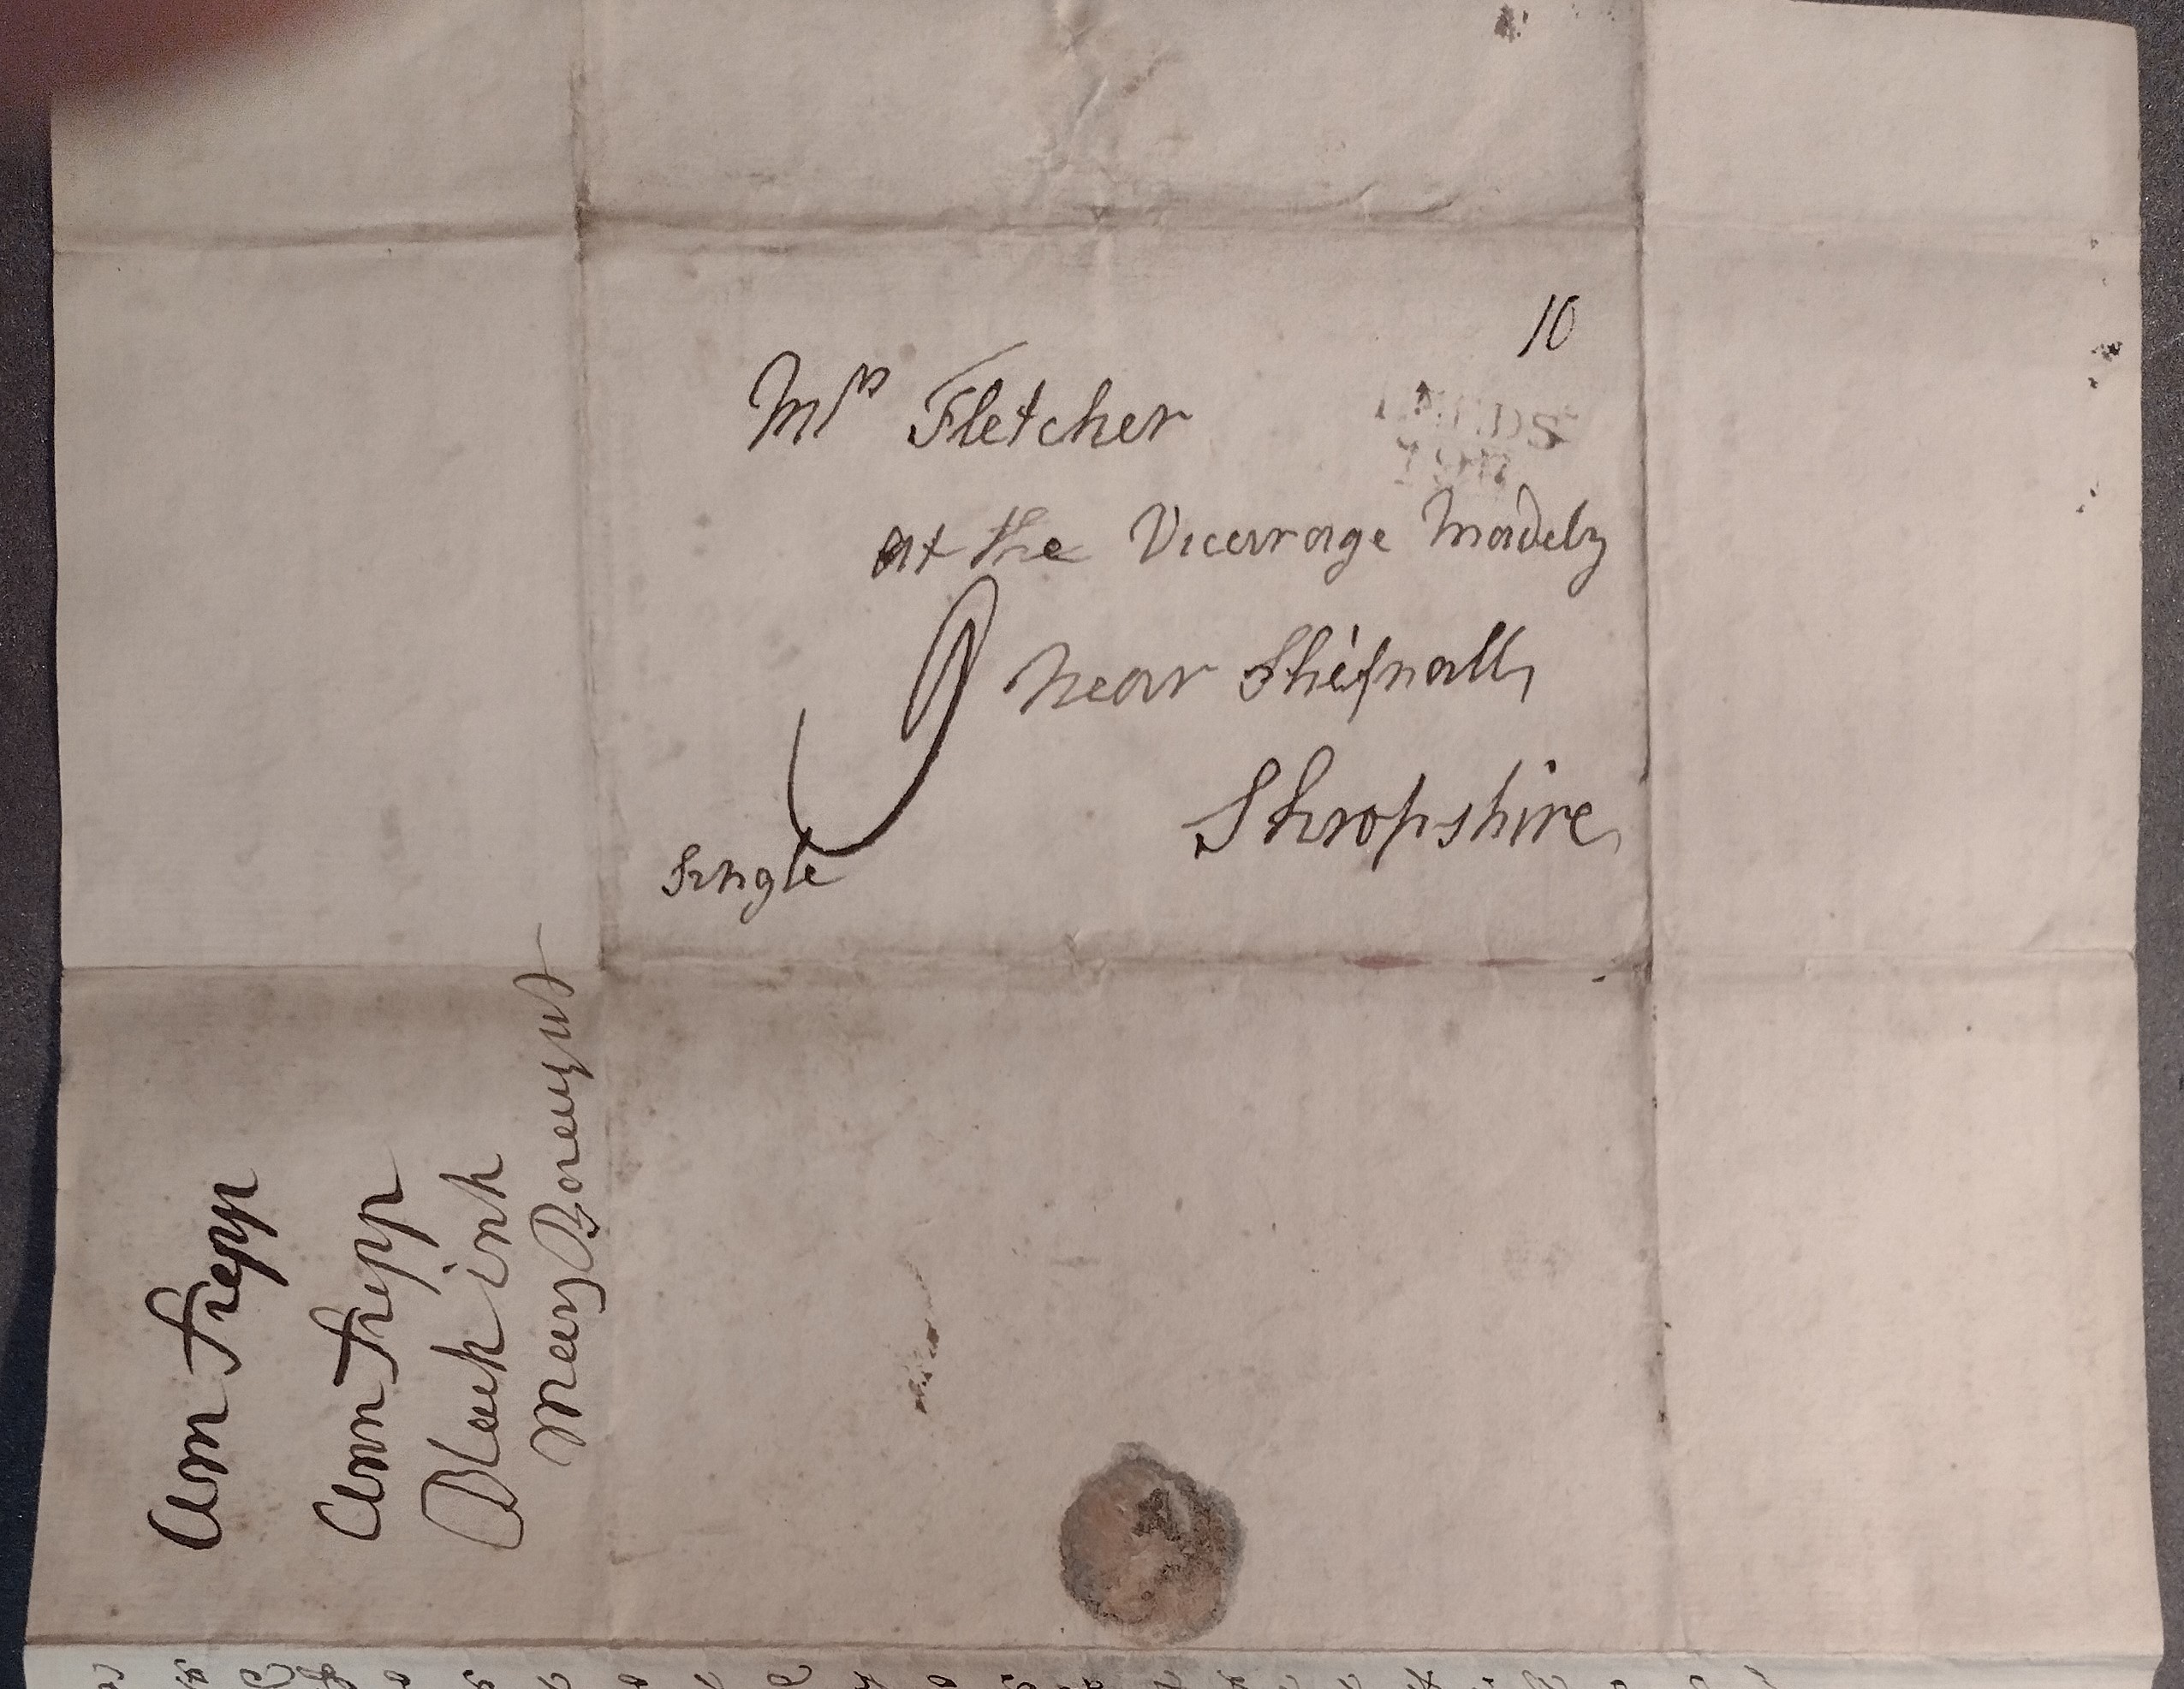 10
Mrs Fletcher
LEEDS
at the Vicarage Madely
9
near Shifnall
Shropshire
Single
Ann Tripp
Ann Tripp
Black ink
Mary